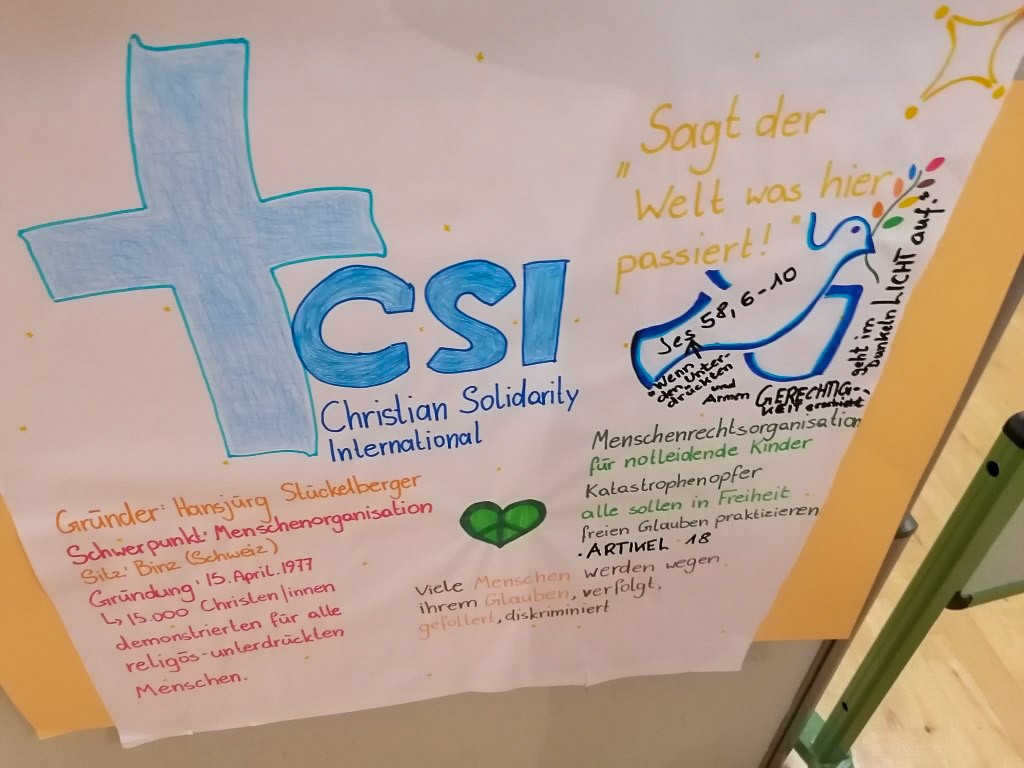 CSI
Christian Solidarity
International
Gründer: Hansjürg Stückelberger
Schwerpunkt: Menschenorganisation
Sitz: Binz (Schweiz)
Gründung: 15. April. 1977
↳ 15.000 Christen/innen
demonstrierten für alle
religös-unterdrückten
Menschen.
Sagt der
"Welt was hier
passiert!"
Jes 58,6-10
"Wenn
der unter-
drückten
und
Armen
GERECHTIG-
KEIT geschieht,
geht im
Dunkeln LICHT auf."
Menschenrechtsorganisation
für notleidende Kinder
Katastrophenopfer
alle sollen in Freiheit
freien Glauben praktizieren
. ARTIKEL 18
Viele Menschen werden wegen
ihrem Glauben, verfolgt,
gefoltert, diskriminiert